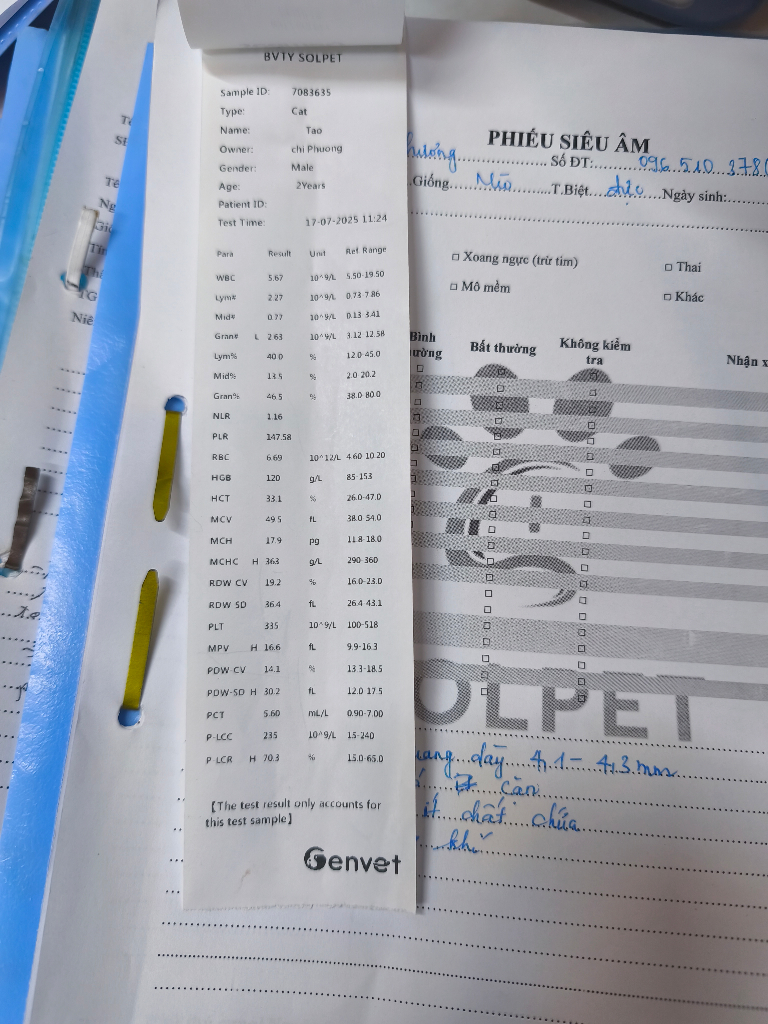 BVTY SOLPET
Sample ID: 7083635
Type: Cat
Name: Tao
Owner: chi Phuong
Gender: Male
Age: 2Years
Patient ID:
Test Time: 17-07-2025 11:24
Para Result Unit Ref. Range
WBC 5.67 10^9/L 5.50-19.50
Lym# 2.27 10^9/L 0.73-7.86
Mid# 0.77 10^9/L 0.13-3.41
Gran# L 2.63 10^9/L 3.12-12.58
Lym% 40.0 % 12.0-45.0
Mid% 13.5 % 2.0-20.2
Gran% 46.5 % 38.0-80.0
NLR 1.16
PLR 147.58
RBC 6.69 10^12/L 4.60-10.20
HGB 120 g/L 85-153
HCT 33.1 % 26.0-47.0
MCV 49.5 fL 38.0-54.0
MCH 17.9 pg 11.8-18.0
MCHC H 363 g/L 290-360
RDW-CV 19.2 % 16.0-23.0
RDW-SD 36.4 fL 26.4-43.1
PLT 335 10^9/L 100-518
MPV H 16.6 fL 9.9-16.3
PDW-CV 14.1 % 13.3-18.5
PDW-SD H 30.2 fL 12.0-17.5
PCT 5.60 mL/L 0.90-7.00
P-LCC 235 10^9/L 15-240
P-LCR H 70.3 % 15.0-65.0
【The test result only accounts for
this test sample】
Genvet
PHIẾU SIÊU ÂM
Số ĐT: 096 510 378
Giống Mèo T.Biệt đực Ngày sinh:
□ Xoang ngực (trừ tim) □ Thai
□ Mô mềm □ Khác
Bất thường Không kiểm
tra
Nhận x
SOLPET
dày 4,1 - 4,3 mm
cặn
ít chất chứa
khí